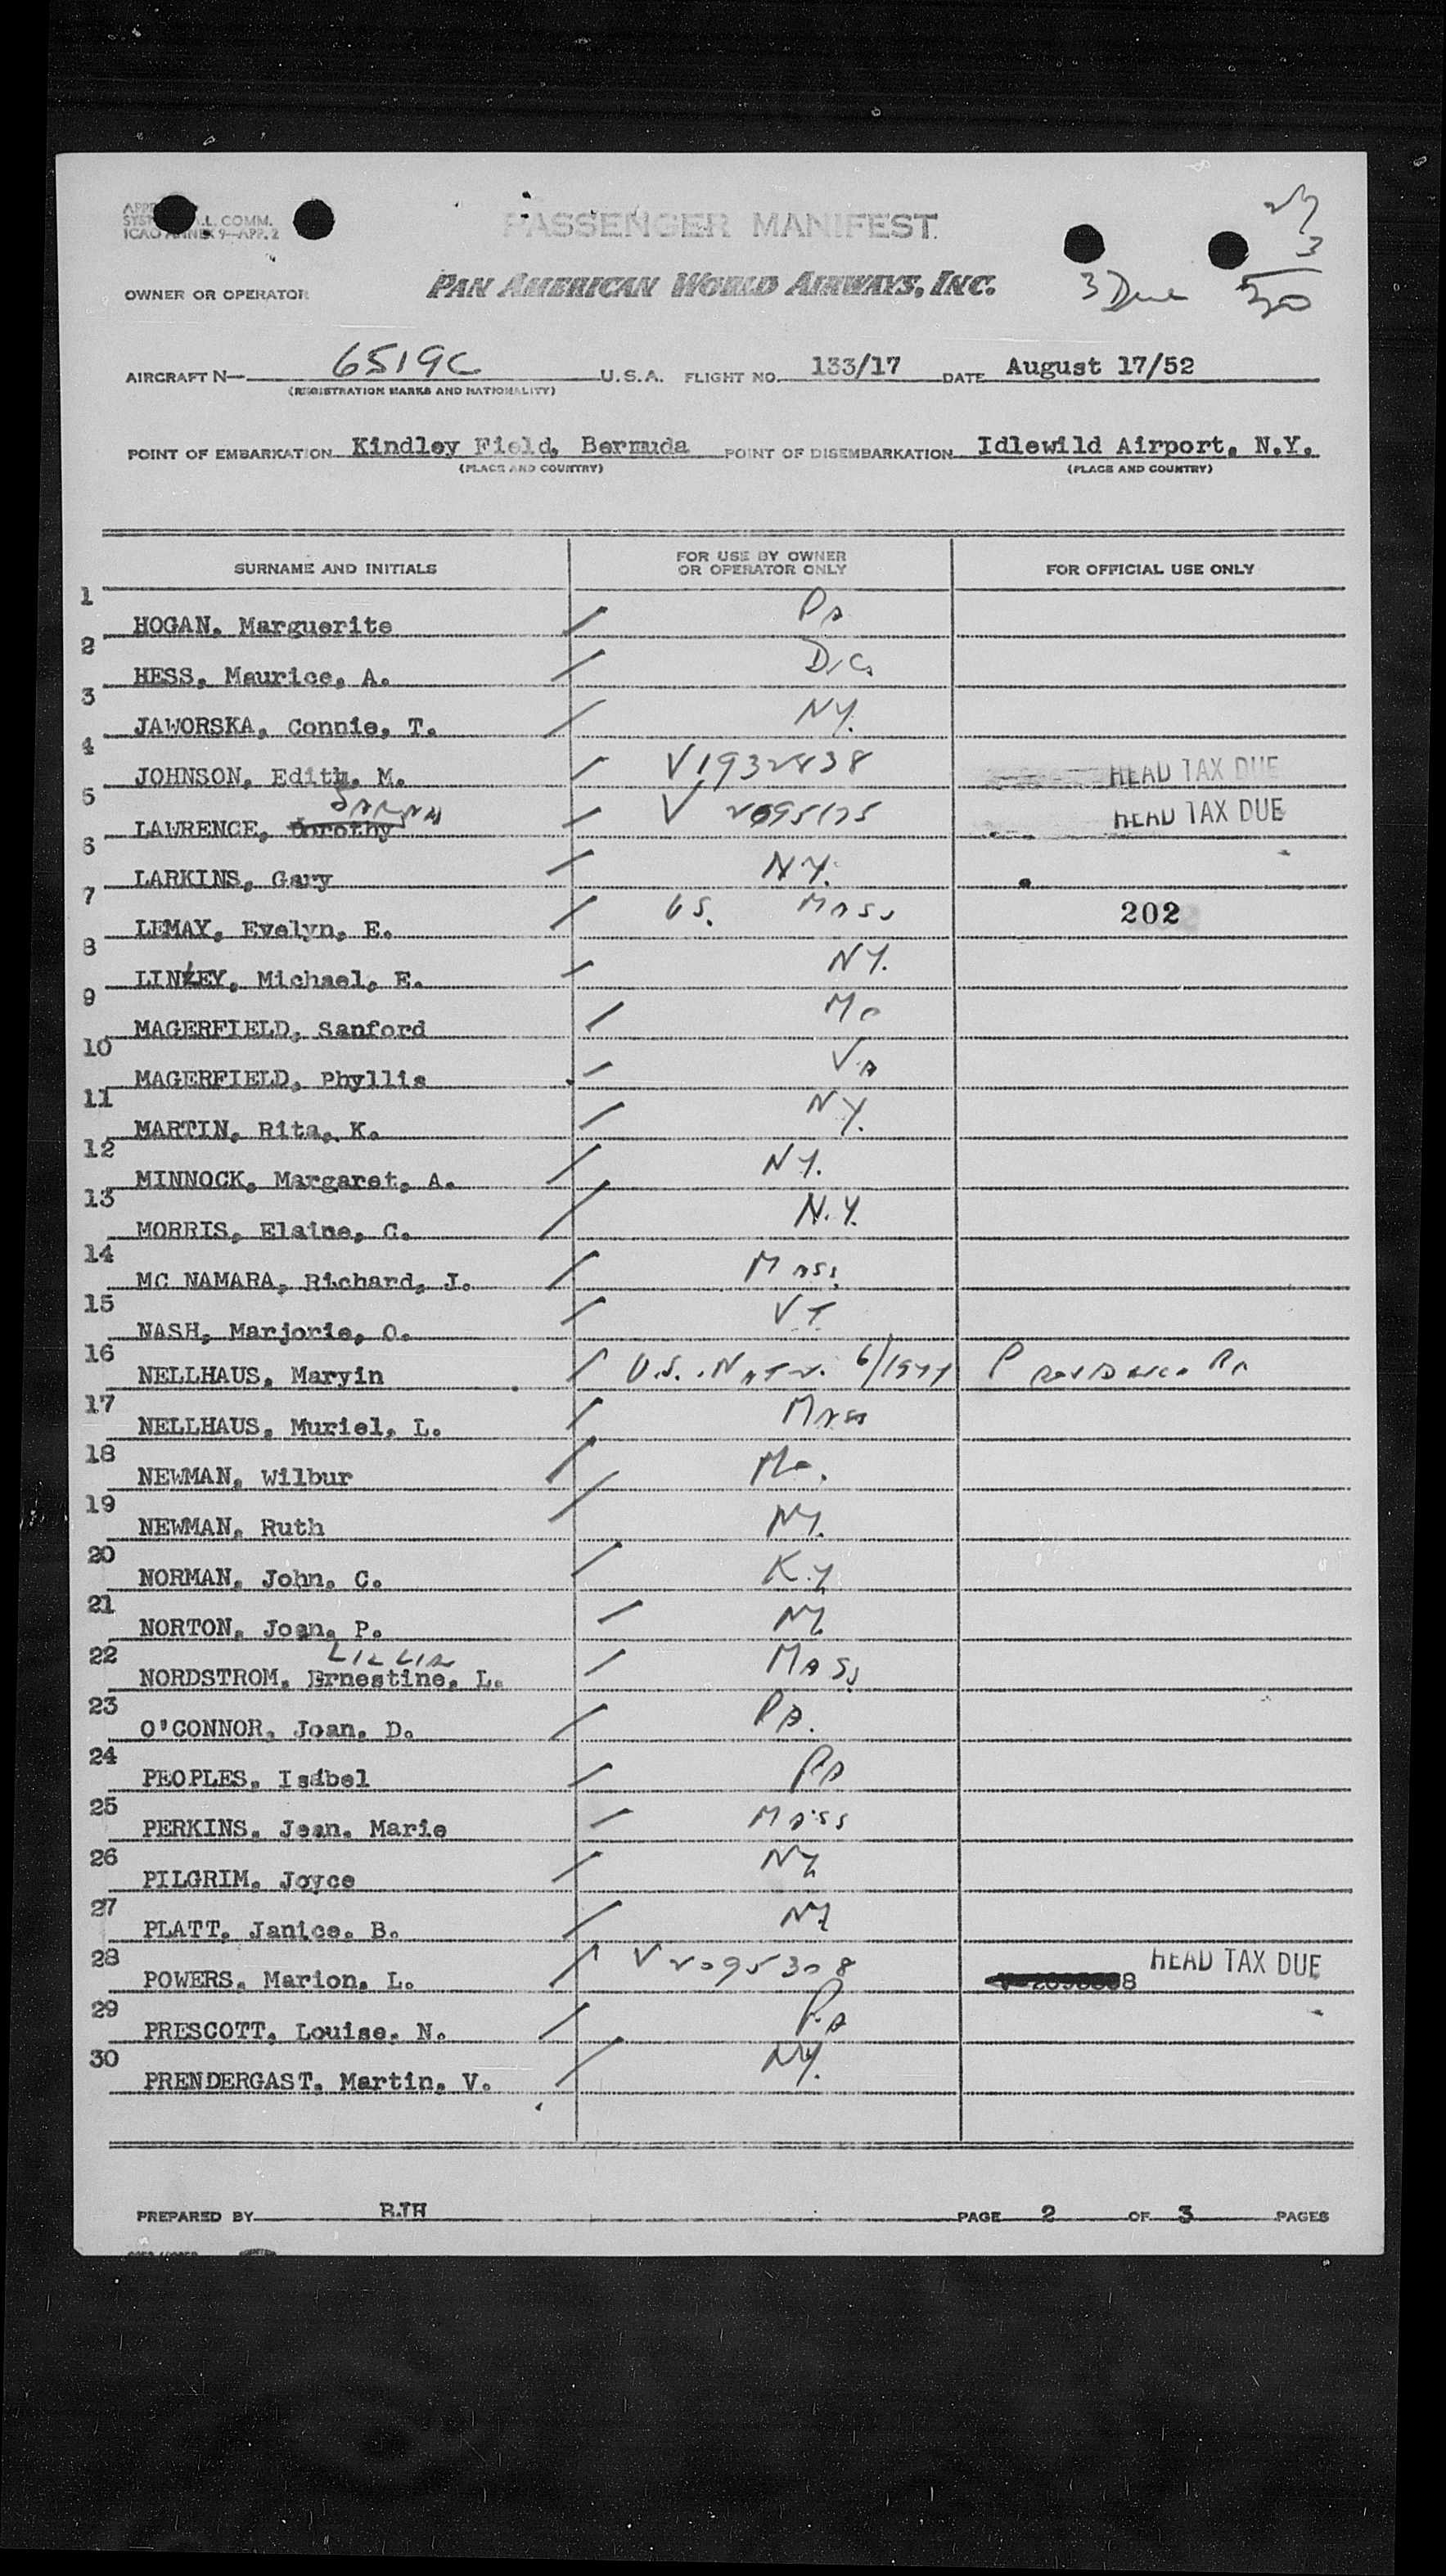 PASSENGER MANIFEST
OWNER OR OPERATOR PAN AMERICAN WORLD AIRWAYS, INC. 3 Due 30
AIRCRAFT N— 6519C U.S.A. FLIGHT NO. 133/17 DATE August 17/52
(REGISTRATION MARKS AND NATIONALITY)
POINT OF EMBARKATION Kindley Field, Bermuda POINT OF DISEMBARKATION Idlewild Airport, N.Y.
(PLACE AND COUNTRY) (PLACE AND COUNTRY)
SURNAME AND INITIALS FOR USE BY OWNER OR OPERATOR ONLY FOR OFFICIAL USE ONLY
1 HOGAN, Marguerite / Pa
2 HESS, Maurice, A. / D.C.
3 JAWORSKA, Connie, T. / NY.
4 JOHNSON, Edith, M. / V1932838 HEAD TAX DUE
5 LAWRENCE, Dorothy SARAH / V 2095175 HEAD TAX DUE
6 LARKINS, Gary / N.Y.
7 LEMAY, Evelyn, E. / US. Mass 202
8 LINZEY, Michael, E. / NY.
9 MAGERFIELD, Sanford / Mo
10 MAGERFIELD, Phyllis / Va
11 MARTIN, Rita, K. / NY.
12 MINNOCK, Margaret, A. / NY.
13 MORRIS, Elaine, C. / N.Y.
14 MC NAMARA, Richard, J. / Mass
15 NASH, Marjorie, O. / VT
16 NELLHAUS, Marvin / U.S. Natz. 6/1944 Providence RI
17 NELLHAUS, Muriel, L. / Mass
18 NEWMAN, Wilbur / Mo.
19 NEWMAN, Ruth / NY.
20 NORMAN, John, C. / K.y
21 NORTON, Joan, P. / NY
22 NORDSTROM, Ernestine, L. LILLIA / Mass
23 O'CONNOR, Joan, D. / Pa.
24 PEOPLES, Isabel / Pa
25 PERKINS, Jean, Marie / Mass
26 PILGRIM, Joyce / NY
27 PLATT, Janice, B. / NY
28 POWERS, Marion, L. / V 2095308 HEAD TAX DUE
29 PRESCOTT, Louise, N. / Pa
30 PRENDERGAST, Martin, V. / NY.
PREPARED BY RJH PAGE 2 OF 3 PAGES